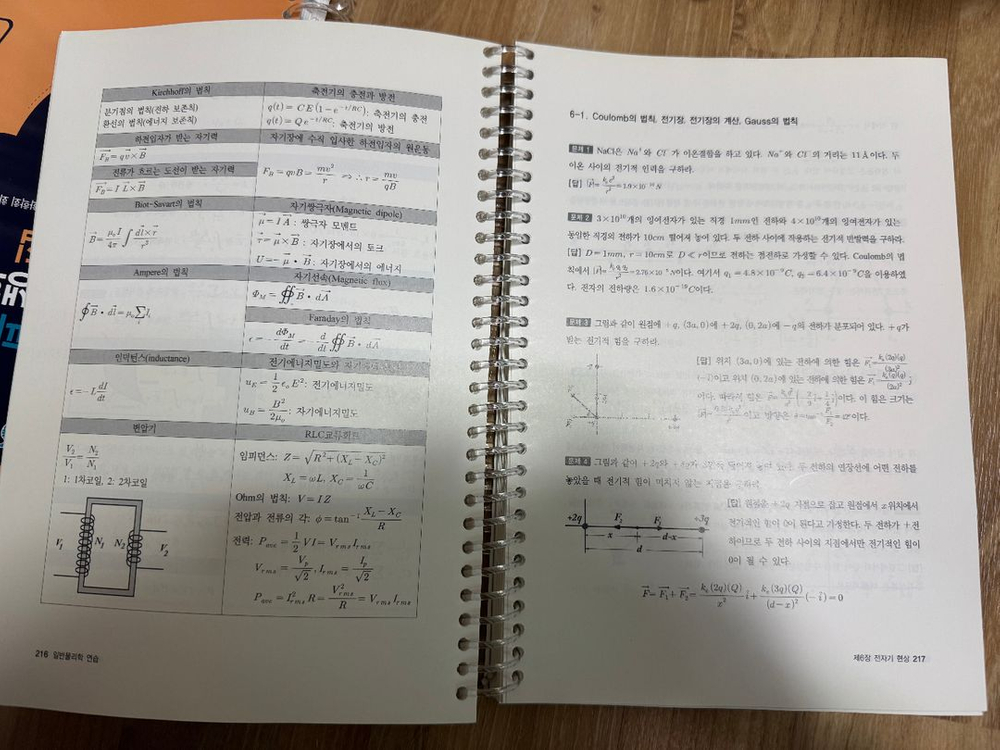 Kirchhoff의 법칙
분기점의 법칙(전하 보존칙)
환선의 법칙(에너지 보존칙)
축전기의 충전과 방전
q(t) = CE(1-e^{-t/RC}): 축전기의 충전
q(t) = Qe^{-t/RC}: 축전기의 방전
하전입자가 받는 자기력
F_B = qv×B
자기장에 수직 입사한 하전입자의 원운동
F_B = qvB = mv²/r ⇒ ∴ r = mv/qB
전류가 흐르는 도선이 받는 자기력
F_B = I L×B
Biot-Savart의 법칙
B = μ₀I/4π ∫ dl×r/r³
자기쌍극자(Magnetic dipole)
μ = I A : 쌍극자 모멘트
τ = μ×B : 자기장에서의 토크
U = -μ • B : 자기장에서의 에너지
Ampere의 법칙
∮B • dl = μ₀∑I_i
자기선속(Magnetic flux)
Φ_M = ∯B • dA
Faraday의 법칙
ε = -dΦ_M/dt = -d/dt ∯B • dA
인덕턴스(inductance)
ε = -L dI/dt
전기에너지밀도와
u_E = 1/2 ε₀E²: 전기에너지밀도
u_B = B²/2μ₀: 자기에너지밀도
변압기
V₂/V₁ = N₂/N₁
1: 1차코일, 2: 2차코일
V₁ N₁ N₂ V₂
RLC교류회로
임피던스: Z = √R²+(X_L-X_C)²
X_L = ωL, X_C = 1/ωC
Ohm의 법칙: V = IZ
전압과 전류의 각: φ = tan⁻¹ X_L-X_C/R
전력: P_ave = 1/2 VI = V_rms I_rms
V_rms = V_p/√2, I_rms = I_p/√2
P_ave = I²_rms R = V²_rms/R = V_rms I_rms
216 일반물리학 연습
6-1. Coulomb의 법칙, 전기장, 전기장의 계산, Gauss의 법칙
문제 1 NaCl은 Na⁺와 Cl⁻가 이온결합을 하고 있다. Na⁺와 Cl⁻의 거리는 11Å이다. 두
이온 사이의 전기적 인력을 구하라.
[답]
문제 2 3×10¹⁰개의 잉여전자가 있는 직경 1mm인 전하와 4×10¹⁰개의 잉여전자가 있는
동일한 직경의 전하가 10cm 떨어져 놓여 있다. 두 전하 사이에 작용하는 전기적 반발력을 구하라.
[답] D = 1mm, r = 10cm로 D ≪ r이므로 전하는 점전하로 가정할 수 있다. Coulomb의 법
칙에서 이다. 여기서 q₁ = 4.8×10⁻⁹C, q₂ = 6.4×10⁻⁹C을 이용하였
다. 전자의 전하량은 1.6×10⁻¹⁹C이다.
문제 3 그림과 같이 원점에 +q, (3a, 0)에 +2q, (0, 2a)에 -q의 전하가 분포되어 있다. +q가
받는 전기적 힘을 구하라.
[답] 위치 (3a, 0)에 있는 전하에 의한 힘은
(-i)이고 위치 (0, 2a)에 있는 전하에 의한 힘은
이다. 따라서 힘은 이다. 이 힘은 크기는
이고 방향은 이다.
문제 4 그림과 같이 +2q와 두 전하의 연장선에 어떤 전하를
놓았을 때 전기적 힘이 미치지 않는 지점을 구하라.
+2q F₂ F₁ +3q
x d-x
d
[답] 원점을 +2q 지점으로 잡고 원점에서 x위치에서
전기적인 힘이 0이 된다고 가정한다. 두 전하가 +전
하이므로 두 전하 사이의 지점에서만 전기적인 힘이
0이 될 수 있다.
F = F₁ + F₂ = k_e(2q)(Q)/x² i + k_e(3q)(Q)/(d-x)² (-i) = 0
제6장 전자기 현상 217